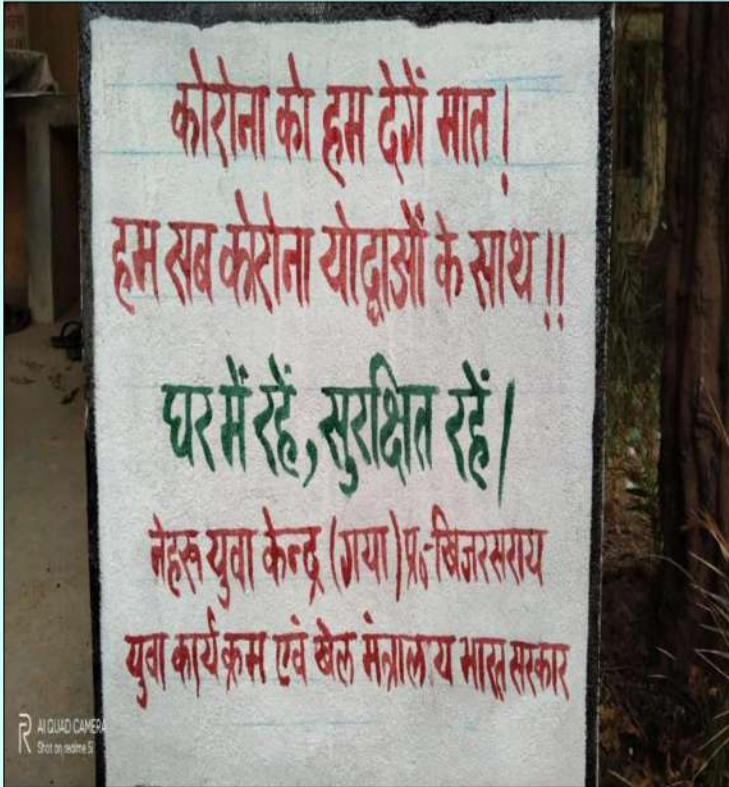 कोरोना को हम देगें मात!
हम सब कोरोना योद्धाओं के साथ!!
घर में रहें, सुरक्षित रहें।
नेहरू युवा केन्द्र (गया) प्र॰-खिजरसराय
युवा कार्यक्रम एवं खेल मंत्रालय भारत सरकार
AI QUAD CAMERA
Shot on realme 5i